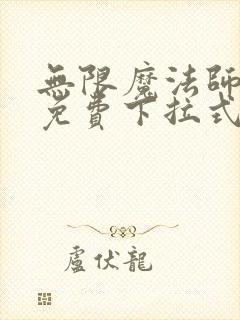 無限魔法師
免費下拉式
盧伏龍